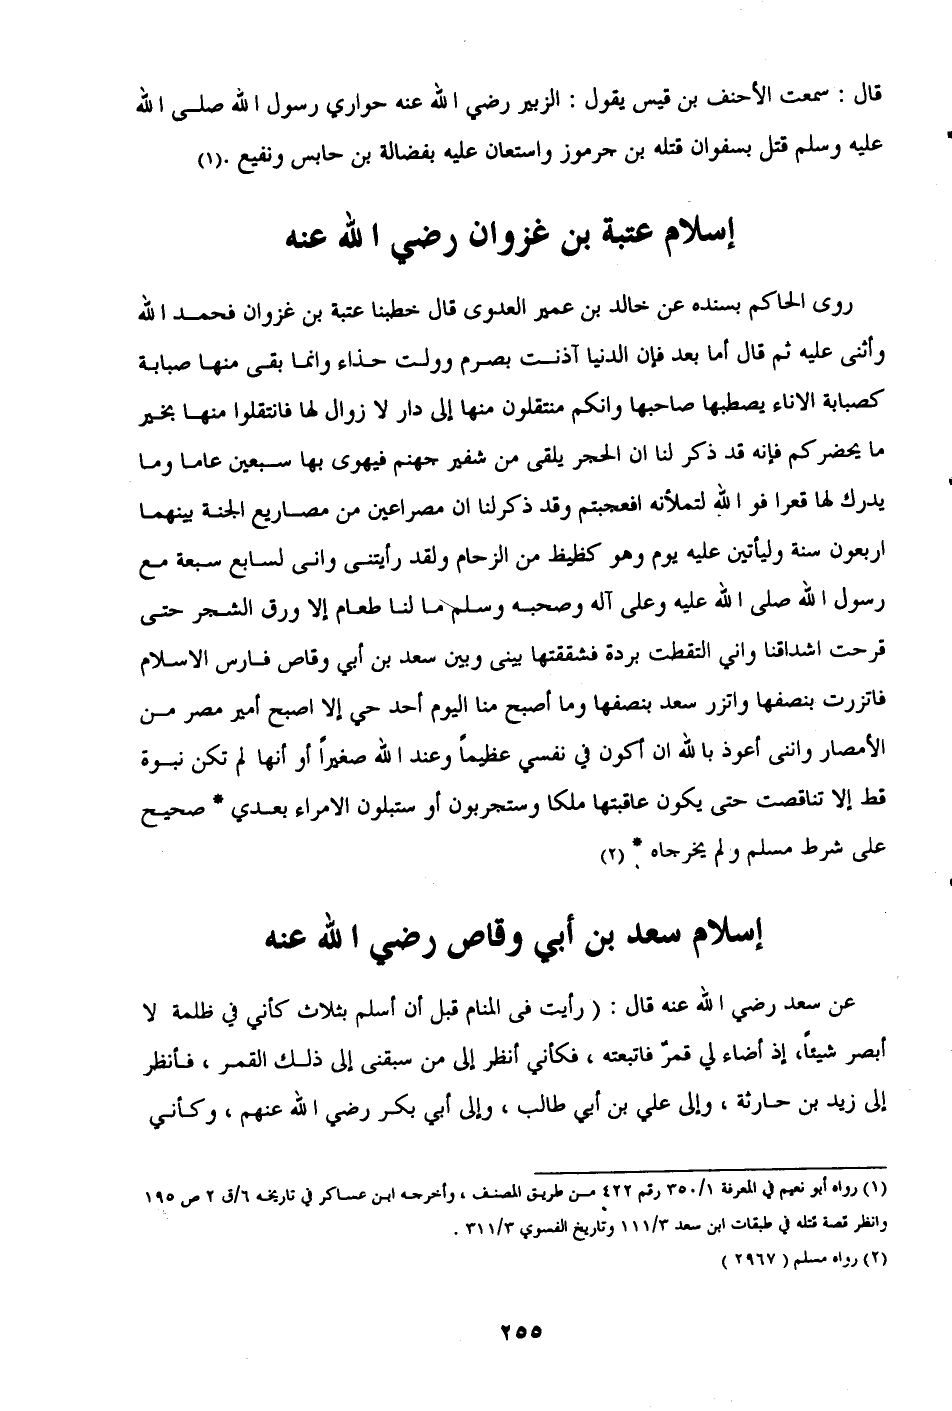 قال : سمعت الأحنف بن قيس يقول : الزبير رضي الله عنه حواري رسول الله صلى الله
عليه وسلم قتل بسفوان قتله بن جرموز واستعان عليه بفضالة بن حابس ونفيع .(١)
إسلام عتبة بن غزوان رضي الله عنه
روى الحاكم بسنده عن خالد بن عمير العدوى قال خطبنا عتبة بن غزوان فحمد الله
وأثنى عليه ثم قال أما بعد فإن الدنيا آذنت بصرم وولت حذاء وانما بقى منها صبابة
كصبابة الاناء يصطبها صاحبها وانكم منتقلون منها إلى دار لا زوال لها فانتقلوا منها بخير
ما يحضركم فإنه قد ذكر لنا ان الحجر يلقى من شفير جهنم فيهوى بها سبعين عاما وما
يدرك لها قعرا فو الله لتملأنه افعجبتم وقد ذكرلنا ان مصراعين من مصاريع الجنة بينهما
اربعون سنة وليأتين عليه يوم وهو كظيظ من الزحام ولقد رأيتنى وانى لسابع سبعة مع
رسول الله صلى الله عليه وعلى آله وصحبه وسلم ما لنا طعام إلا ورق الشجر حتى
قرحت اشداقنا واني التقطت بردة فشققتها بينى وبين سعد بن أبي وقاص فارس الاسلام
فاتزرت بنصفها واتزر سعد بنصفها وما أصبح منا اليوم أحد حي إلا اصبح أمير مصر من
الأمصار واننى أعوذ بالله ان أكون في نفسي عظيماً وعند الله صغيراً أو أنها لم تكن نبوة
قط إلا تناقصت حتى يكون عاقبتها ملكا وستجربون أو ستبلون الامراء بعدي * صحيح
على شرط مسلم ولم يخرجاه * (٢)
إسلام سعد بن أبي وقاص رضي الله عنه
عن سعد رضي الله عنه قال : ( رأيت فى المنام قبل أن أسلم بثلاث كأني في ظلمة لا
أبصر شيئاً، إذ أضاء لي قمرٌ فاتبعته ، فكأني أنظر إلى من سبقنى إلى ذلك القمر ، فأنظر
إلى زيد بن حارثة ، وإلى علي بن أبي طالب ، وإلى أبي بكر رضي الله عنهم ، وكأني
(١) رواه أبو نعيم في المعرفة ٣٥٠/١ رقم ٤٢٢ من طريق المصنف ، وأخرجه ابن عساكر في تاريخه ٦/ق ٢ ص ١٩٥
وانظر قصة قتله في طبقات ابن سعد ١١١/٣ وتاريخ الفسوي ٣١١/٣ .
(٢) رواه مسلم ( ٢٩٦٧ )
٢٥٥